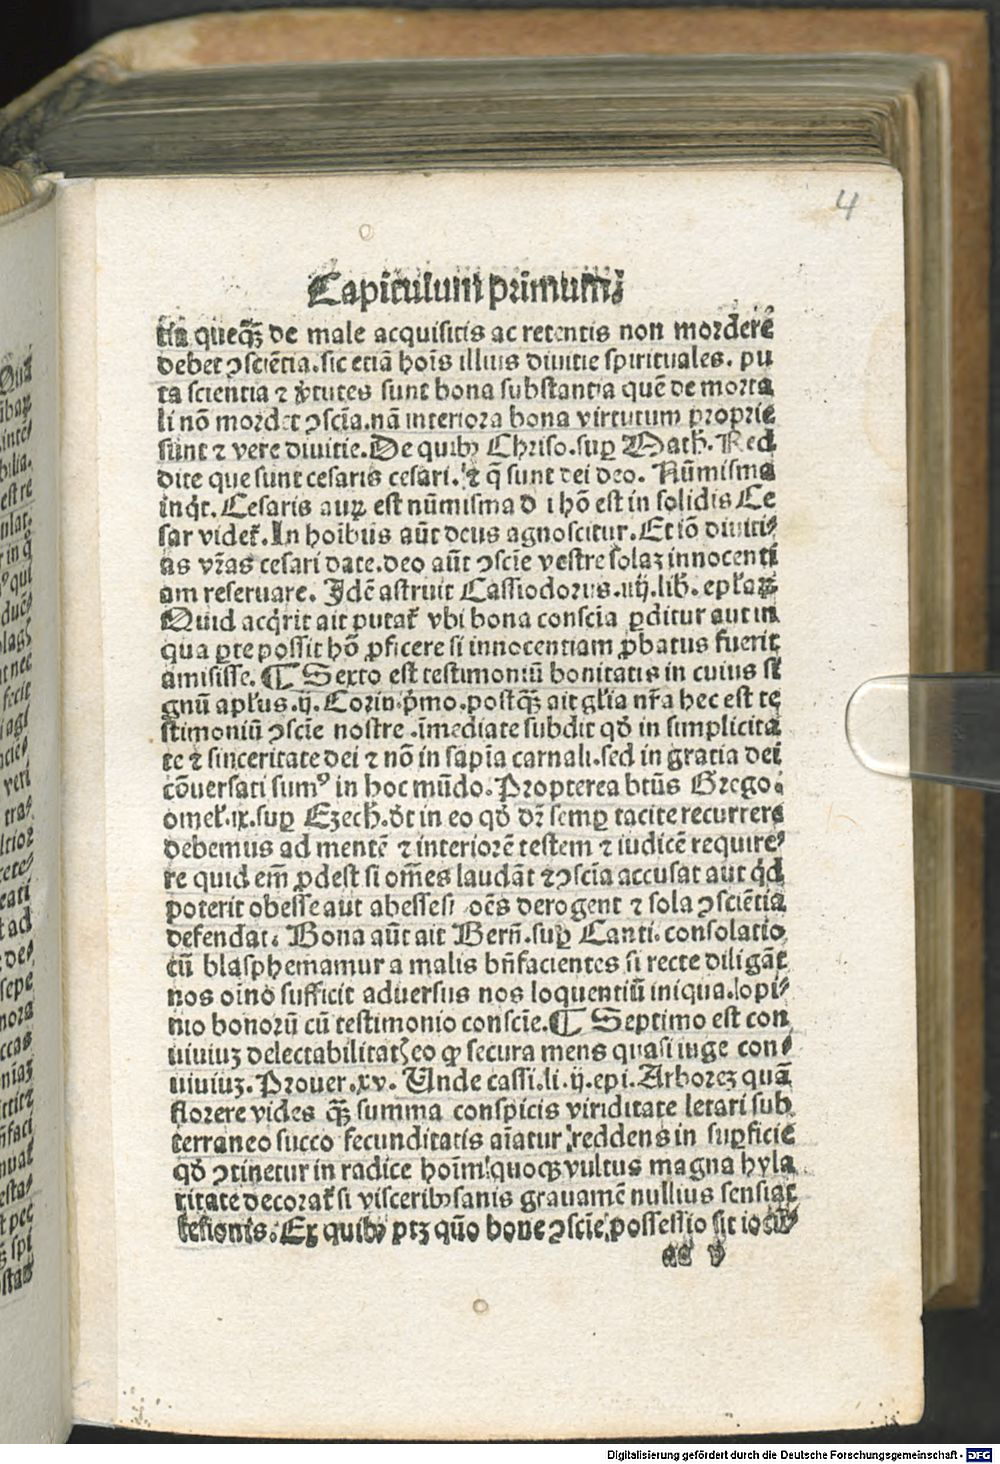 4
Capitulum primum
tia queqꝫ de male acquisitis ac retentis non mordere
debet ↄsciẽtia. sic etiã hoĩs illius diuitie spirituales. pu
ta scientia ⁊ v̾tutes sunt bona substantia quẽ de morta
li nõ mordet ↄscĩa. nã interiora bona virtutum proprie
sunt ⁊ vere diuitie. De quibꝰ Chriso. suꝑ Math. Red
dite que sunt cesaris cesari. ⁊ q̃ sunt dei deo. Nũmisma
inqͥt. Cesaris auꝝ est nũmisma d i hõ est in solidis Ce
sar videt᷑. In hoĩbus aũt deus agnoscitur. Et iõ diuiti⸗
as vr̃as cesari date. deo aũt ↄscĩe vestre solaꝫ innocenti
am reseruare. Idẽ astruit Cassiodorus .iiij. lib. epl'aꝝ
Quid acqͥrit ait putat᷑ vbi bona conscĩa ꝑditur aut in
qua ꝑte possit hõ ꝓficere si innocentiam ꝓbatus fuerit
amisisse. ¶ Sexto est testimoniũ bonitatis in cuius si
gnũ apl'us .ij. Corin. pͥmo. postqꝫ ait gl'ia nr̃a hec est te
stimoniũ ↄscĩe nostre .ĩmediate subdit qđ in simplicita
te ⁊ sinceritate dei ⁊ nõ in sapĩa carnali. sed in gratia dei
cõuersati sumꝰ in hoc mũdo. Propterea btũs Grego.
omel'. ix. suꝑ Ezech. d̾t in eo qđ dr̃ semꝑ tacite recurrere
debemus ad mentẽ ⁊ interiorẽ testem ⁊ iudicẽ require⸗
re quid em̃ ꝓdest si om̃es laudãt ⁊ ↄscĩa accusat aut qͥd
poterit obesse aut abesse si oẽs derogent ⁊ sola ↄsciẽtia
defendat. Bona aũt ait Berñ. suꝑ Canti. consolatio
cũ blasphemamur a malis bñfacientes si recte diligãt
nos oĩno sufficit aduersus nos loquentiũ iniqua. opi⸗
nio bonorũ cũ testimonio conscĩe. ¶ Septimo est con
uiuiuꝫ delectabilitatꝭ eo ꝙ secura mens quasi iuge con⸗
uiuiuꝫ. Prouer. xv. Unde cassi. li. ij. epi. Arboreꝫ quã
florere vides qꝫ summa conspicis viriditate letari sub
terraneo succo fecunditatis aĩatur reddens in suꝑficie
qđ ↄtinetur in radice hoĩm quoqꝫ vultus magna hyla
ritate decorat᷑ si visceribꝰ sanis grauamẽ nullius sentiat
lesionis. Ex quibꝰ ptꝫ quõ bone ↄscĩe possessio sit
Digitalisierung gefördert durch die Deutsche Forschungsgemeinschaft - DFG